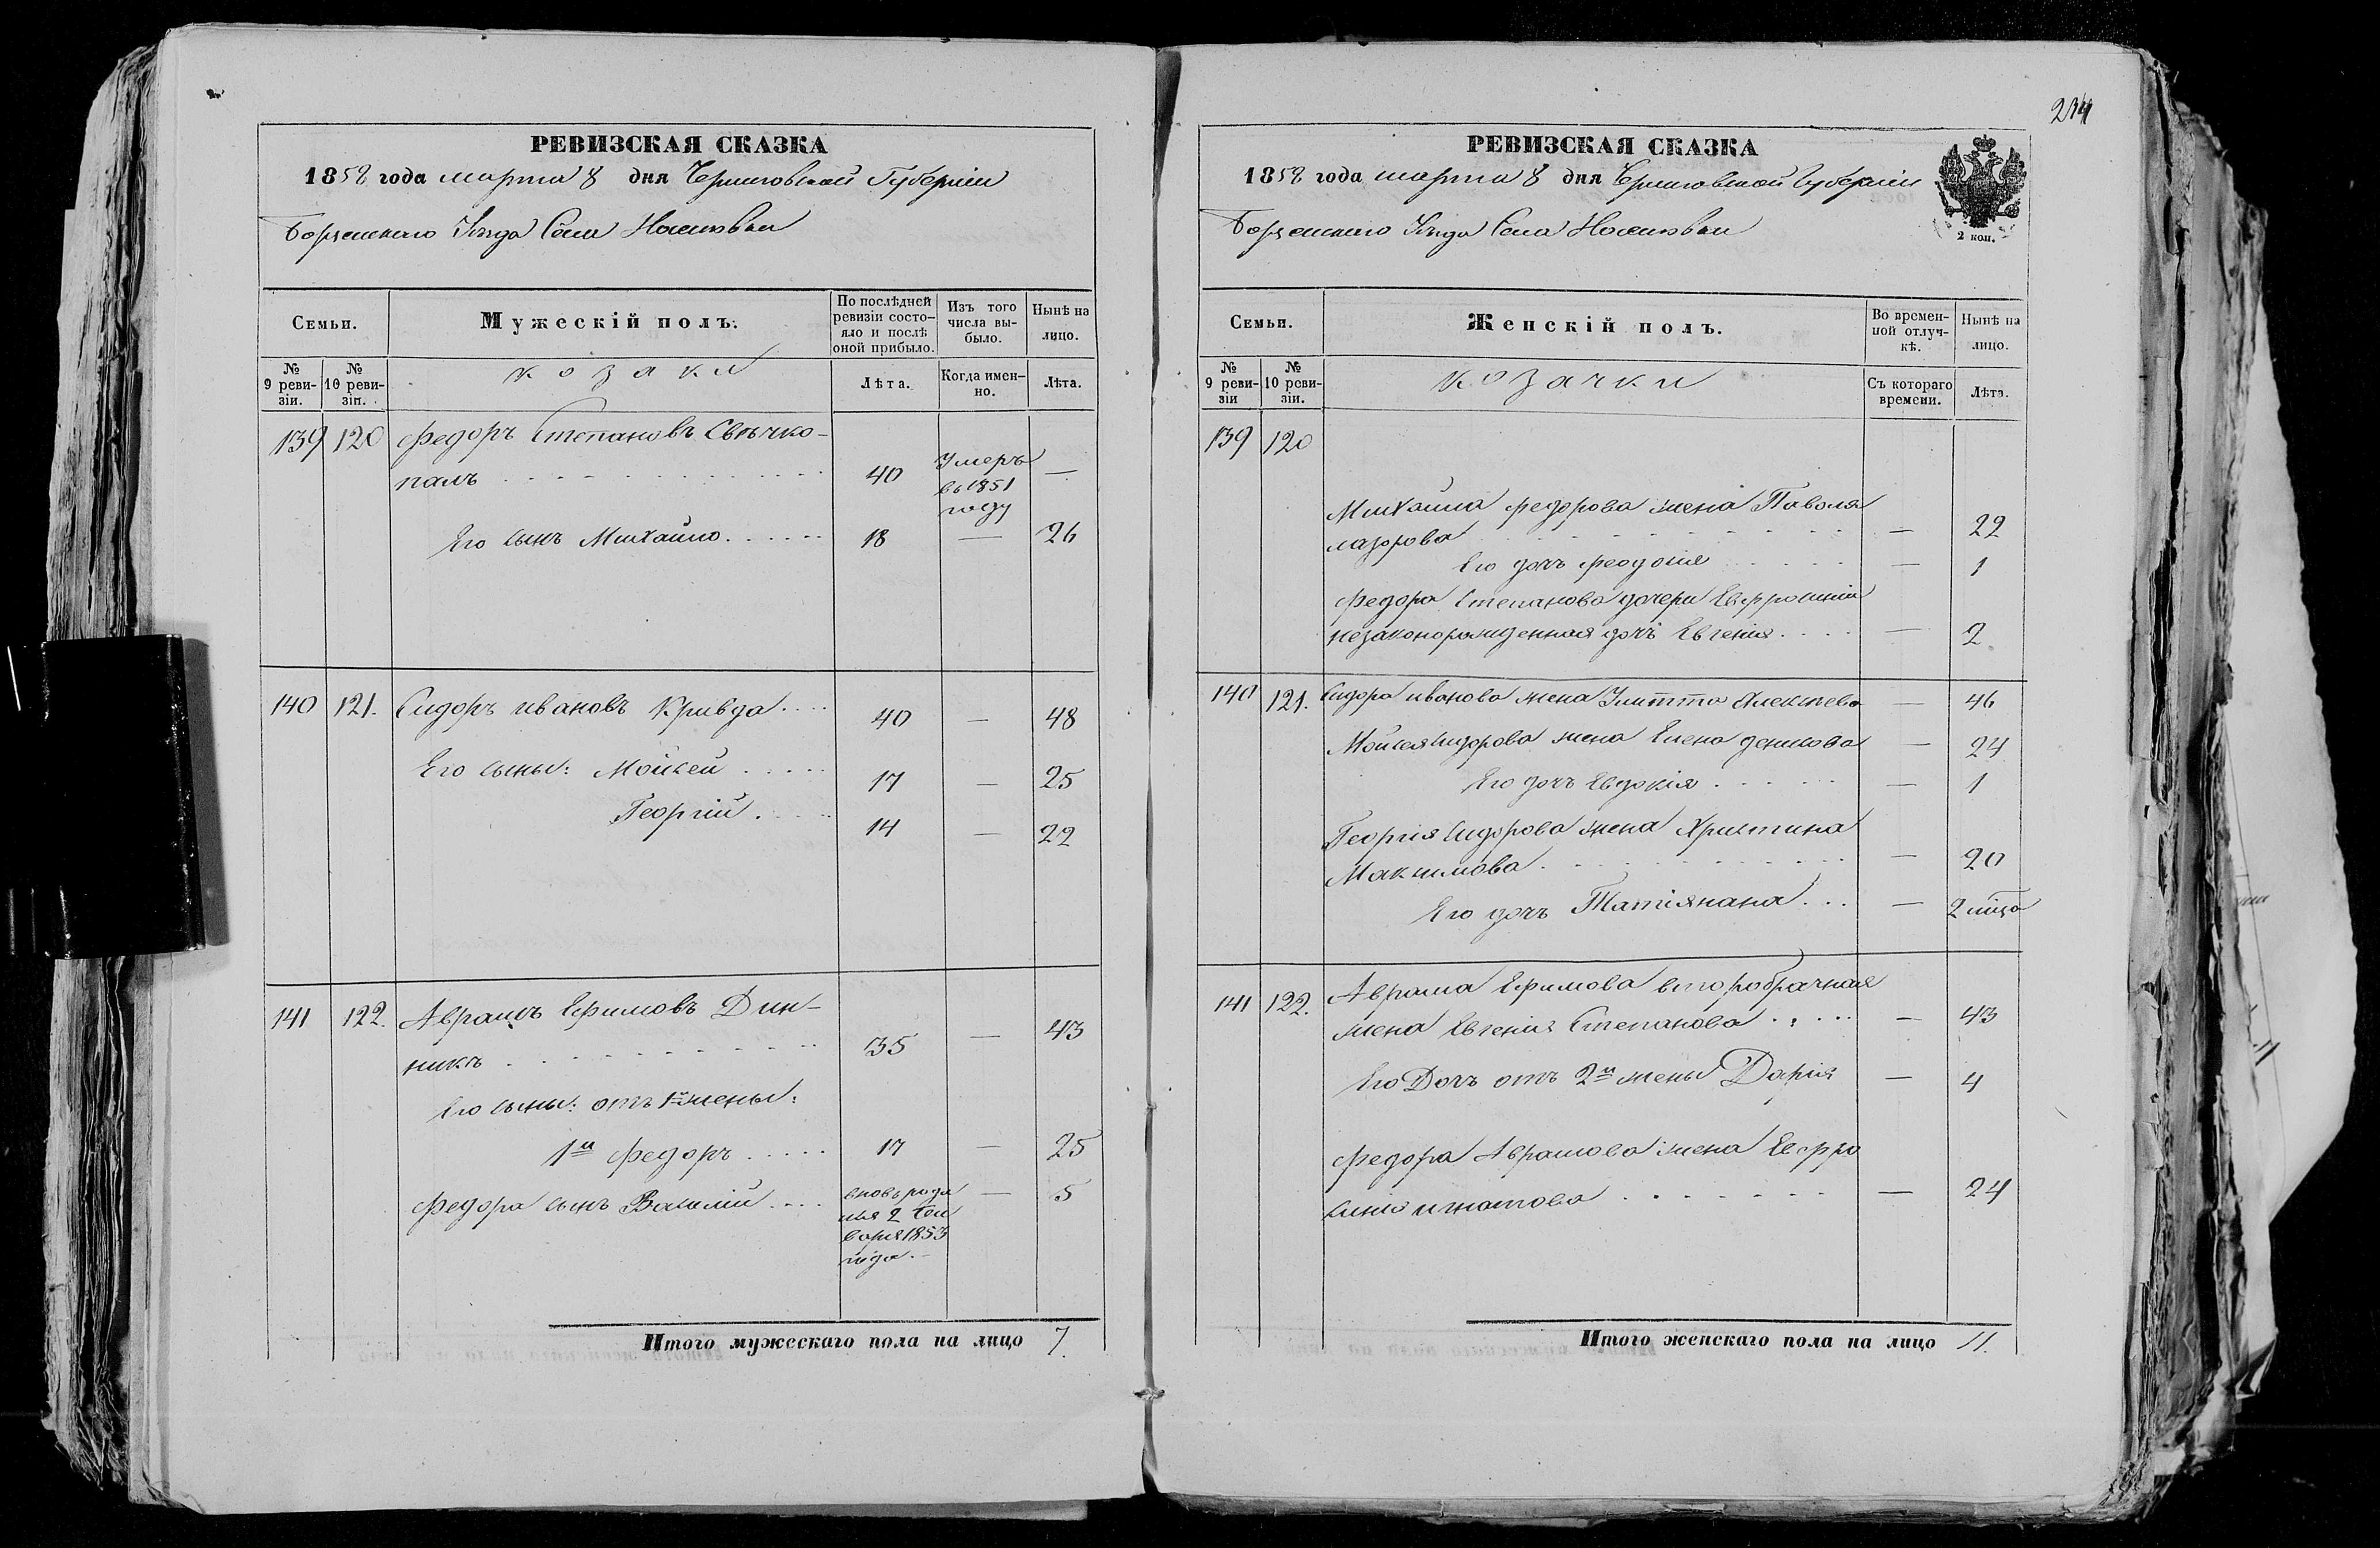 РЕВИЗСКАЯ СКАЗКА
1858 года марта 8 дня Черниговской Губернiи
Борзенскаго Уѣзда Села
Семьи.
Мужескiй полъ.
По послѣдней ревизiи состо-
яло и послѣ
оной прибыло.
Изъ того
числа вы-
было.
Нынѣ на
лицо.
№
9 реви-
зiи.
№
10 реви-
зiи.
козаки
Лѣта.
Когда имен-
но.
Лѣта.
139 120 Федоръ Степановъ Свѣчко-
палъ 40 Умеръ в 1851 году —
Его сынъ Михайло 18 — 26
140 121. Сидоръ ивановъ Кривда 40 — 48
Его сыны: Мойсей 17 — 25
Георгiй 14 — 22
141 122. Аврамъ Ефимовъ Дин-
никъ 35 — 43
Его сыны: отъ 1й жены:
1й Федоръ 17 — 25
Федора сынъ Василiй — 5
Итого мужескаго пола на лицо 7.
234
РЕВИЗСКАЯ СКАЗКА
1858 года марта 8 дня Черниговской Губернiи
Борзенскаго Уѣзда Села
2 коп.
Семьи.
Женскiй полъ.
Во времен-
ной отлуч-
кѣ.
Нынѣ на
лицо.
№
9 реви-
зiи
№
10 реви-
зiи.
козачки
Съ котораго
времени.
Лѣта.
139 120
Михайла Федорова жена
лазорова — 22
Его дочь Феодосiя — 1
Федора Степанова дочери Евфросинiи
незаконорожденная дочь Евгенiя — 2
140 121. Сидора иванова жена Улитта Алексѣева — 46
Мойсея Сидорова жена Елена денисова — 24
Его дочь Евдокiя — 1
Георгiя Сидорова жена Христина
Максимова — 20
Его дочь Татiянана — 2
141 122. Аврама Ефимова второбрачная
жена Евгенiя Степанова — 43
Его Дочь отъ 2й жены Дарiя — 4
Федора Аврамова жена Евфро
синiя игнатова — 24
Итого женскаго пола на лицо 11.